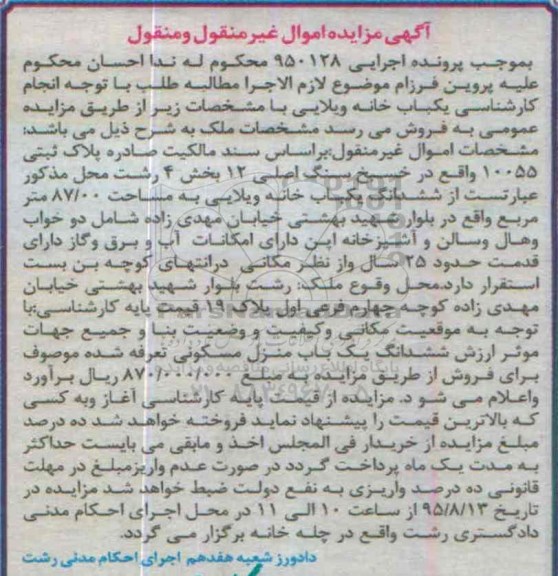 آگهی مزایده اموال غیر منقول و منقول
بموجب پرونده اجرایی ۹۵۰۱۲۸ محکوم له ندا احسان محکوم
علیه پروین فرزام موضوع لازم الاجرا مطالبه طلب با توجه انجام
کارشناسی یکباب خانه ویلایی با مشخصات زیر از طریق مزایده
عمومی به فروش می رسد مشخصات ملک به شرح ذیل می باشد:
مشخصات اموال غیرمنقول:براساس سند مالکیت صادره پلاک ثبتی
۱۰۰۵۵ واقع در خسبخ سنگ اصلی ۱۲ بخش ۴ رشت محل مذکور
عبارتست از ششدانگ یکباب خانه ویلایی به مساحت ۸۷/۰۰ متر
مربع واقع در بلوار شهید بهشتی خیابان مهدی زاده شامل دو خواب
وهال وسالن و آشپزخانه این دارای امکانات آب و برق وگاز دارای
قدمت حدود ۲۵ سال واز نظر مکانی درانتهای کوچه بن بست
استقرار دارد.محل وقوع ملک: رشت بلوار شهید بهشتی خیابان
مهدی زاده کوچه چهارم فرعی اول پلاک ۱۹ قیمت پایه کارشناسی:با
توجه به موقعیت مکانی وکیفیت و وضعیت بنا و جمیع جهات
موثر ارزش ششدانگ یک باب منزل مسکونی تعرفه شده موصوف
برای فروش از طریق مزایده به مبلغ ریال برآورد
واعلام می شو د. مزایده از قیمت پایه کارشناسی آغاز وبه کسی
که بالاترین قیمت را پیشنهاد نماید فروخته خواهد شد ده درصد
مبلغ مزایده از خریدار فی المجلس اخذ و مابقی می بایست حداکثر
به مدت یک ماه پرداخت گردد در صورت عدم واریزمبلغ در مهلت
قانونی ده درصد واریزی به نفع دولت ضبط خواهد شد مزایده در
تاریخ ۹۵/۸/۱۳ از ساعت ۱۰ الی ۱۱ در محل اجرای احکام مدنی
دادگستری رشت واقع در چله خانه برگزار می گردد.
دادورز شعبه هفدهم اجرای احکام مدنی رشت